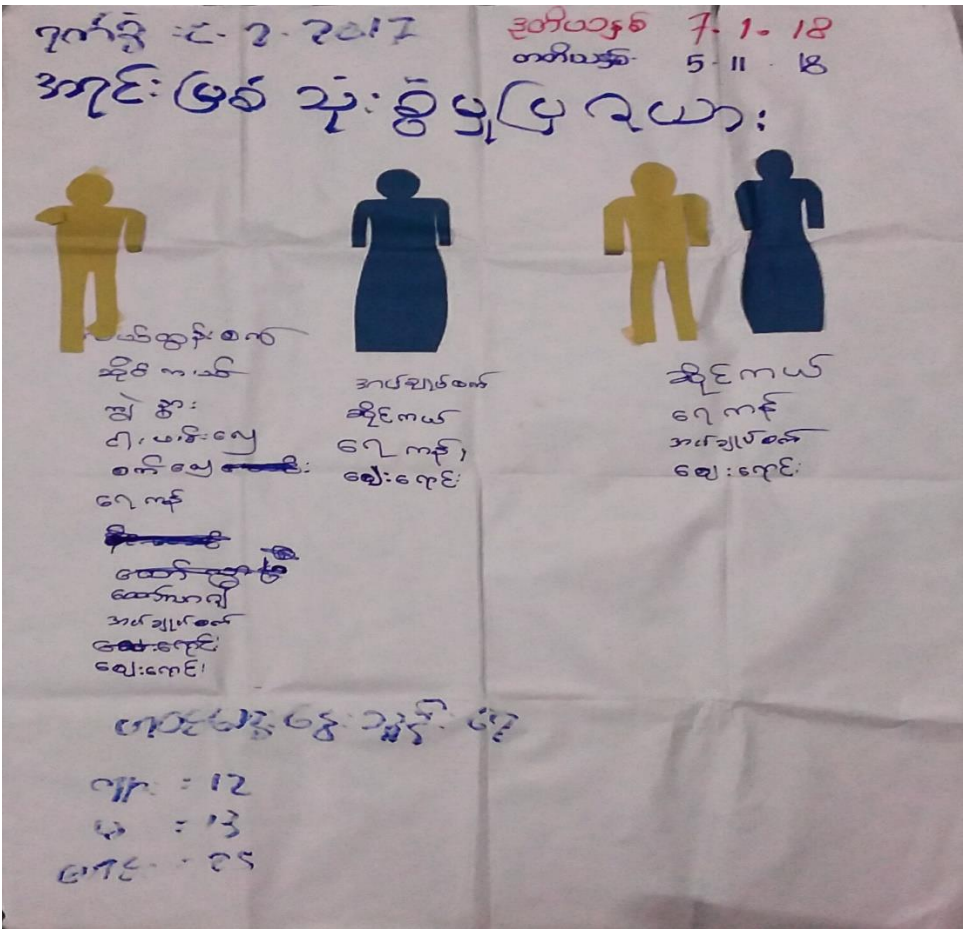 ရက်စွဲ :၎- ၃ - 2017
ဒုတိယနှစ် 7- 1- 18
တတိယနှစ်- 5-11-18
အရင်းမြစ် သုံးစွဲမှုပြ ဇယား
ထယ်ထွန်းစက်
ဆိုင်ကယ်
ကျွဲ နွား
ငါးဖမ်းလှေ
စက်လှေ
ရေကန်
ထော်လာဂျီ
အပ်ချုပ်စက်
ဈေးရောင်း
အပ်ချုပ်စက်
ဆိုင်ကယ်
ရေကန်,
ဈေးရောင်း
ဆိုင်ကယ်
ရေကန်
အပ်ချုပ်စက်
ဈေးရောင်း
ကျား = 12
မ = 13
ပေါင်း = 25